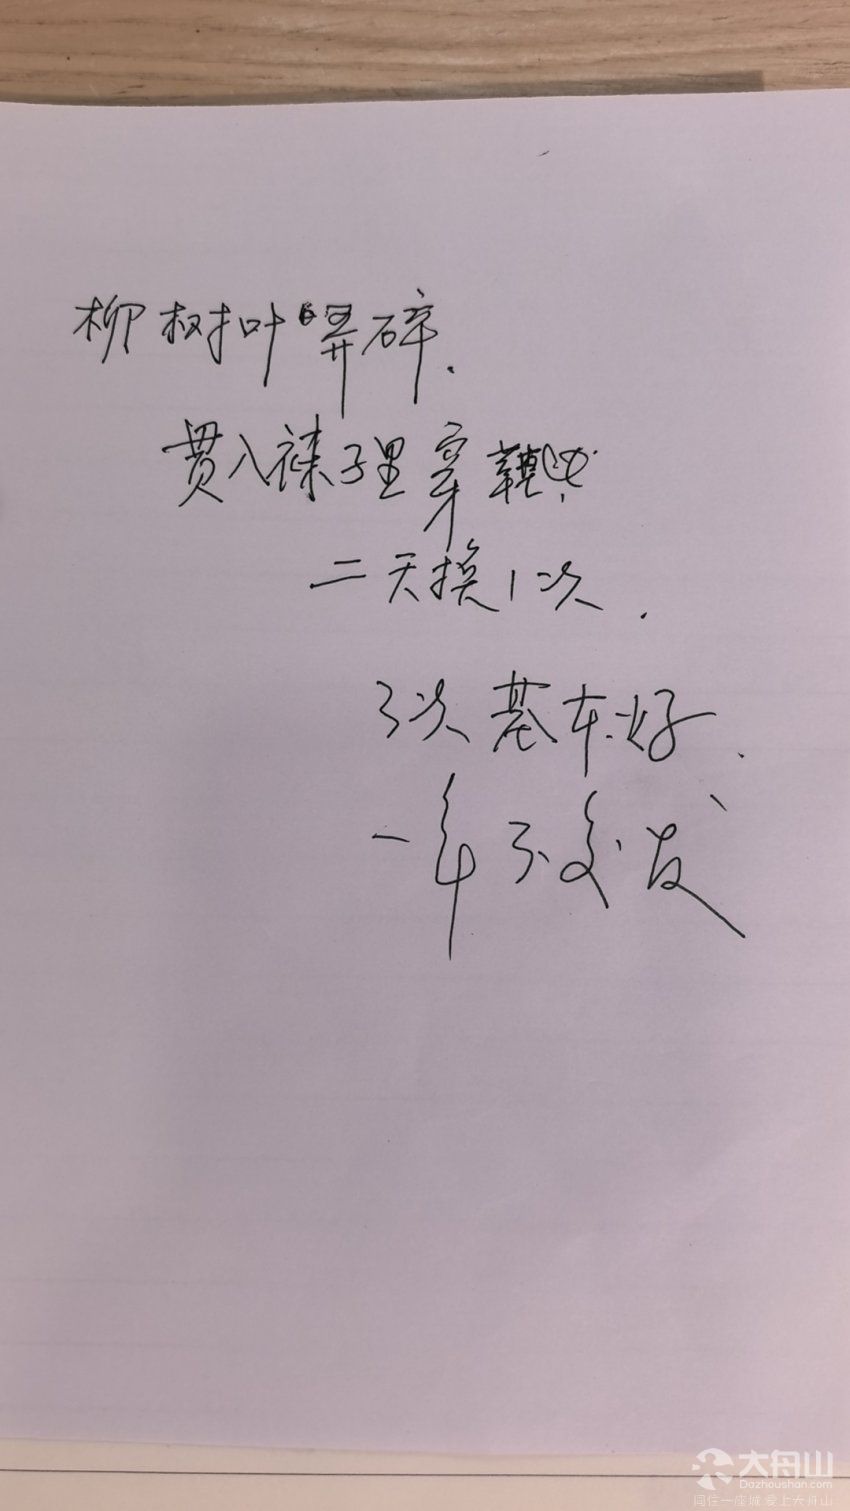 柳树叶弄碎.
贯入袜子里穿鞋
二天换1次.
3次基本好.
一年不复发
大舟山
Dazhoushan.com
同住一座城 爱上大舟山